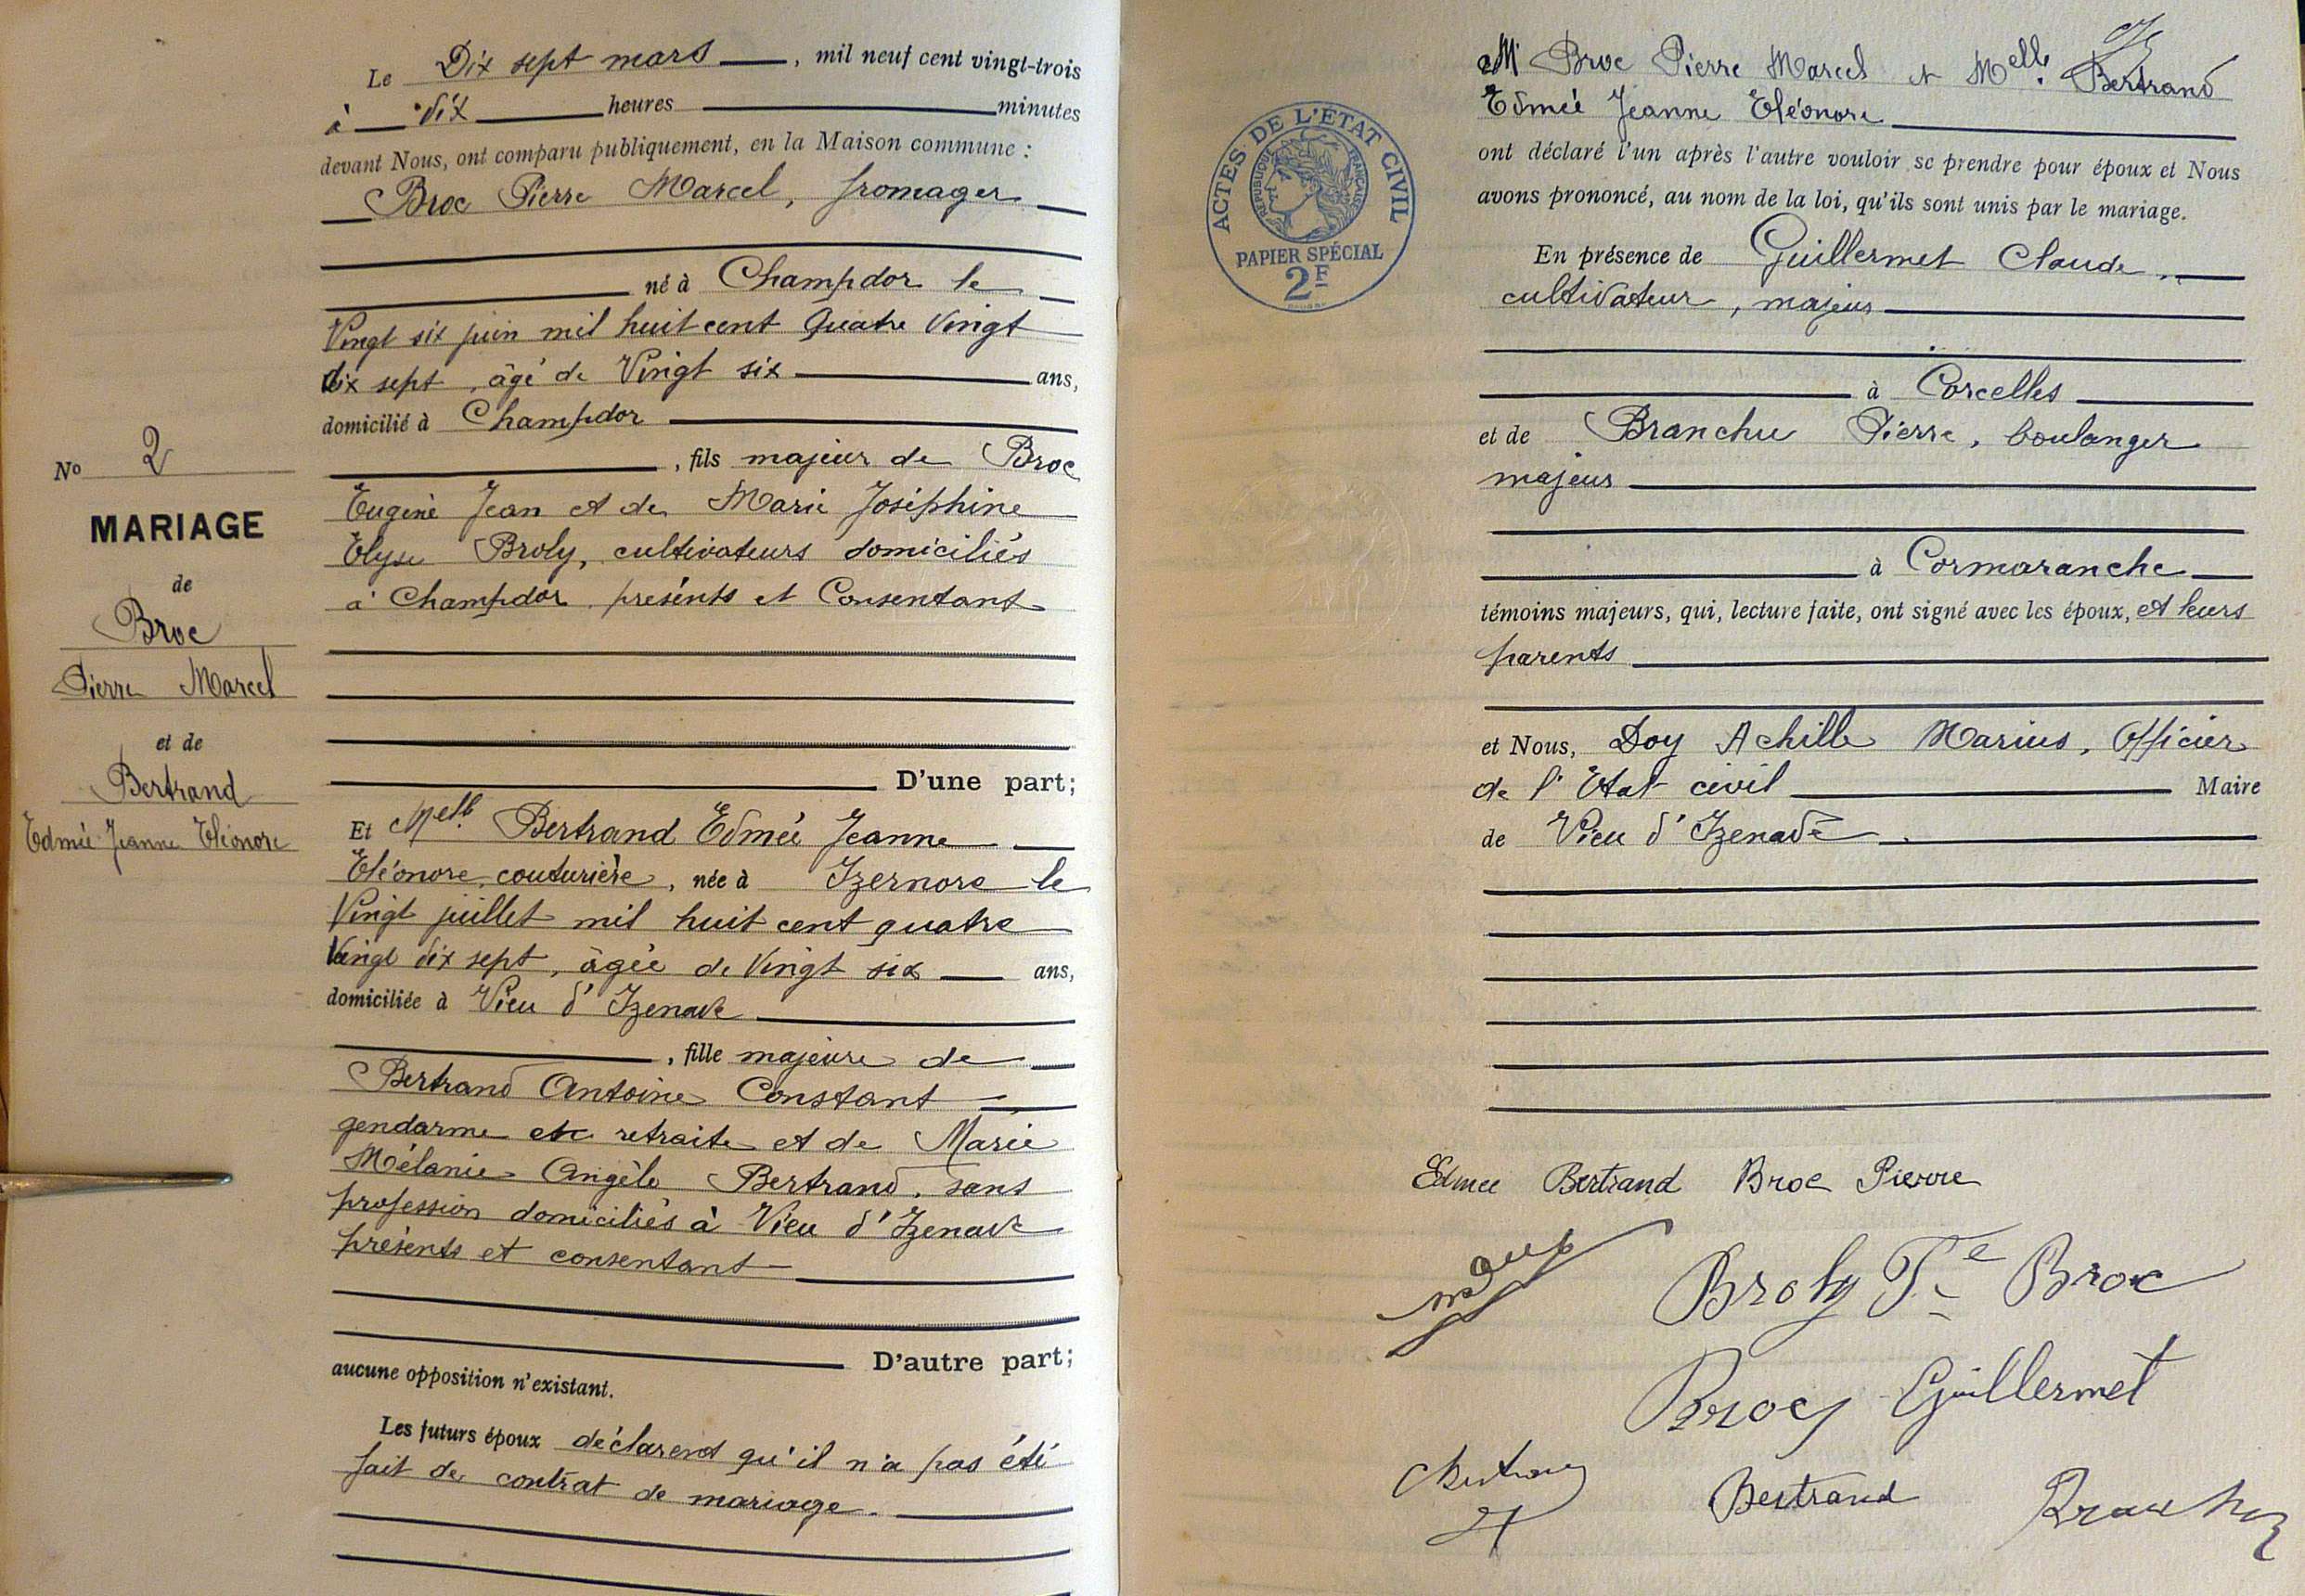 Le Dix sept mars, mil neuf cent vingt-trois
à dix heures minutes
devant Nous, ont comparu publiquement, en la Maison commune :
Broc Pierre Marcel, fromager
né à Champdor le
Vingt six juin mil huit cent Quatre Vingt
dix sept, âgé de Vingt six ans,
domicilié à Champdor
, fils majeur de Broc
Eugène Jean et de Marie Joséphine
Elyse Broly, cultivateurs domiciliés
à Champdor, présents et Consentant
D'une part;
Et Melle Bertrand Edmée Jeanne
Eléonore, couturière, née à Izernore le
Vingt juillet mil huit cent quatre
Vingt dix sept, âgée de Vingt six ans,
domiciliée à Vieu d'Izenave
, fille majeure de
Bertrand Antoine Constant
gendarme en retraite et de Marie
Mélanie Angèle Bertrand, sans
profession domiciliés à Vieu d'Izenave
présents et consentant
D'autre part;
aucune opposition n'existant.
Les futurs époux déclarent qu'il n'a pas été
fait de contrat de mariage.
No 2
MARIAGE
de
Broc
Pierre Marcel
et de
Bertrand
Edmée Jeanne Eléonore
ACTES DE L'ÉTAT CIVIL
RÉPUBLIQUE FRANÇAISE
PAPIER SPÉCIAL
2F
Mr Broc Pierre Marcel et Melle Bertrand
Edmée Jeanne Eléonore
ont déclaré l'un après l'autre vouloir se prendre pour époux et Nous
avons prononcé, au nom de la loi, qu'ils sont unis par le mariage.
En présence de Guillermet Claude,
cultivateur, majeur
à Corcelles
et de Branchu Pierre, boulanger
majeur
à Cormaranche
témoins majeurs, qui, lecture faite, ont signé avec les époux, et leurs
parents
et Nous, Doy Achille Marius, Officier
de l'Etat civil Maire
de Vieu d'Izenave
Edmee Bertrand Broc Pierre
Broly Fe Broc
Broc Guillermet
Bertrand
Bertrand